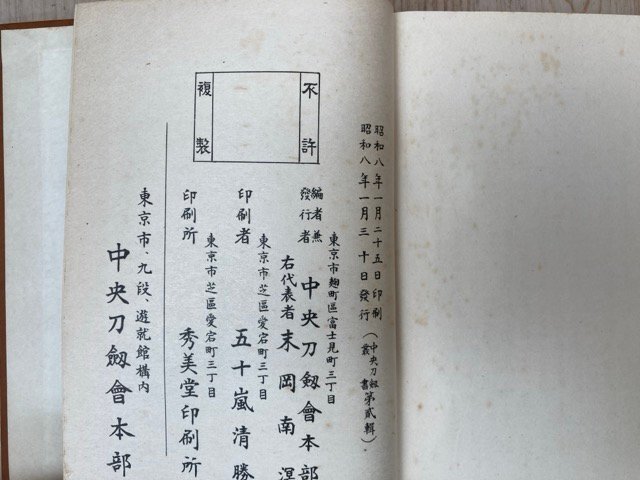 昭和八年一月二十五日印刷
昭和八年一月三十日發行
(中央刀劔叢書第貳輯)
不許
複製
東京市麹町區富士見町三丁目
編者兼
發行者
中央刀劔會本部
右代表者 末岡南
東京市芝區愛宕町三丁目
印刷者 五十嵐清勝
東京市芝區愛宕町三丁目
印刷所 秀美堂印刷所
東京市、九段、遊就館構内
中央刀劔會本部